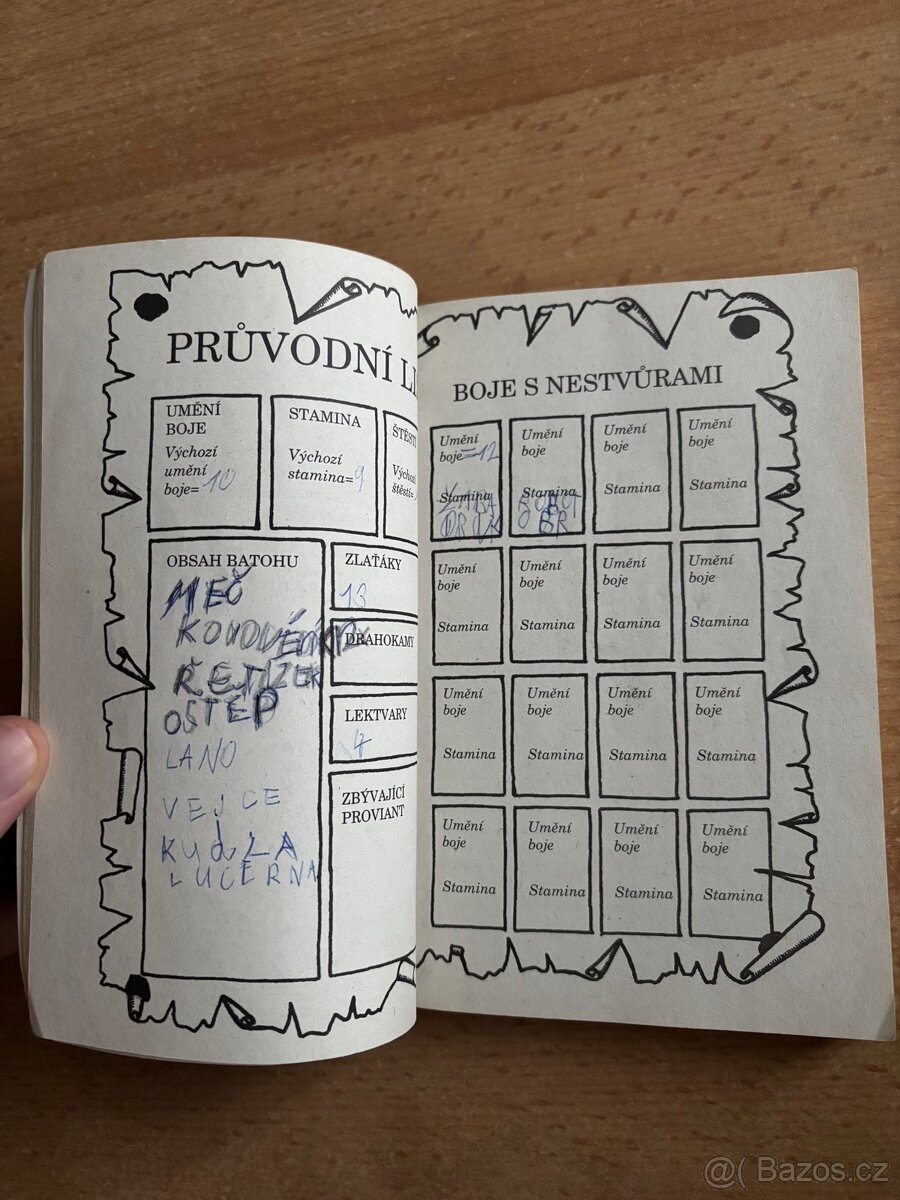 PRŮVODNÍ LI
UMĚNÍ
BOJE
Výchozí
umění
boje=10
STAMINA
Výchozí
stamina=9
ŠTĚSTÍ
štěstí=
OBSAH BATOHU
MEČ
ŘETÍZEK
OŠTĚP
LANO
VEJCE
KUDLA
LUCERNA
ZLAŤÁKY
13
DRAHOKAMY
LEKTVARY
ZBÝVAJÍCÍ
PROVIANT
BOJE S NESTVŮRAMI
Umění
boje=12
Stamina
Umění
boje
Stamina
ROBOT
OBR
Umění
boje
Stamina
Umění
boje
Stamina
Umění
boje
Stamina
Umění
boje
Stamina
Umění
boje
Stamina
Umění
boje
Stamina
Umění
boje
Stamina
Umění
boje
Stamina
Umění
boje
Stamina
Umění
boje
Stamina
Umění
boje
Stamina
Umění
boje
Stamina
Umění
boje
Stamina
Umění
boje
Stamina
@( Bazos.cz